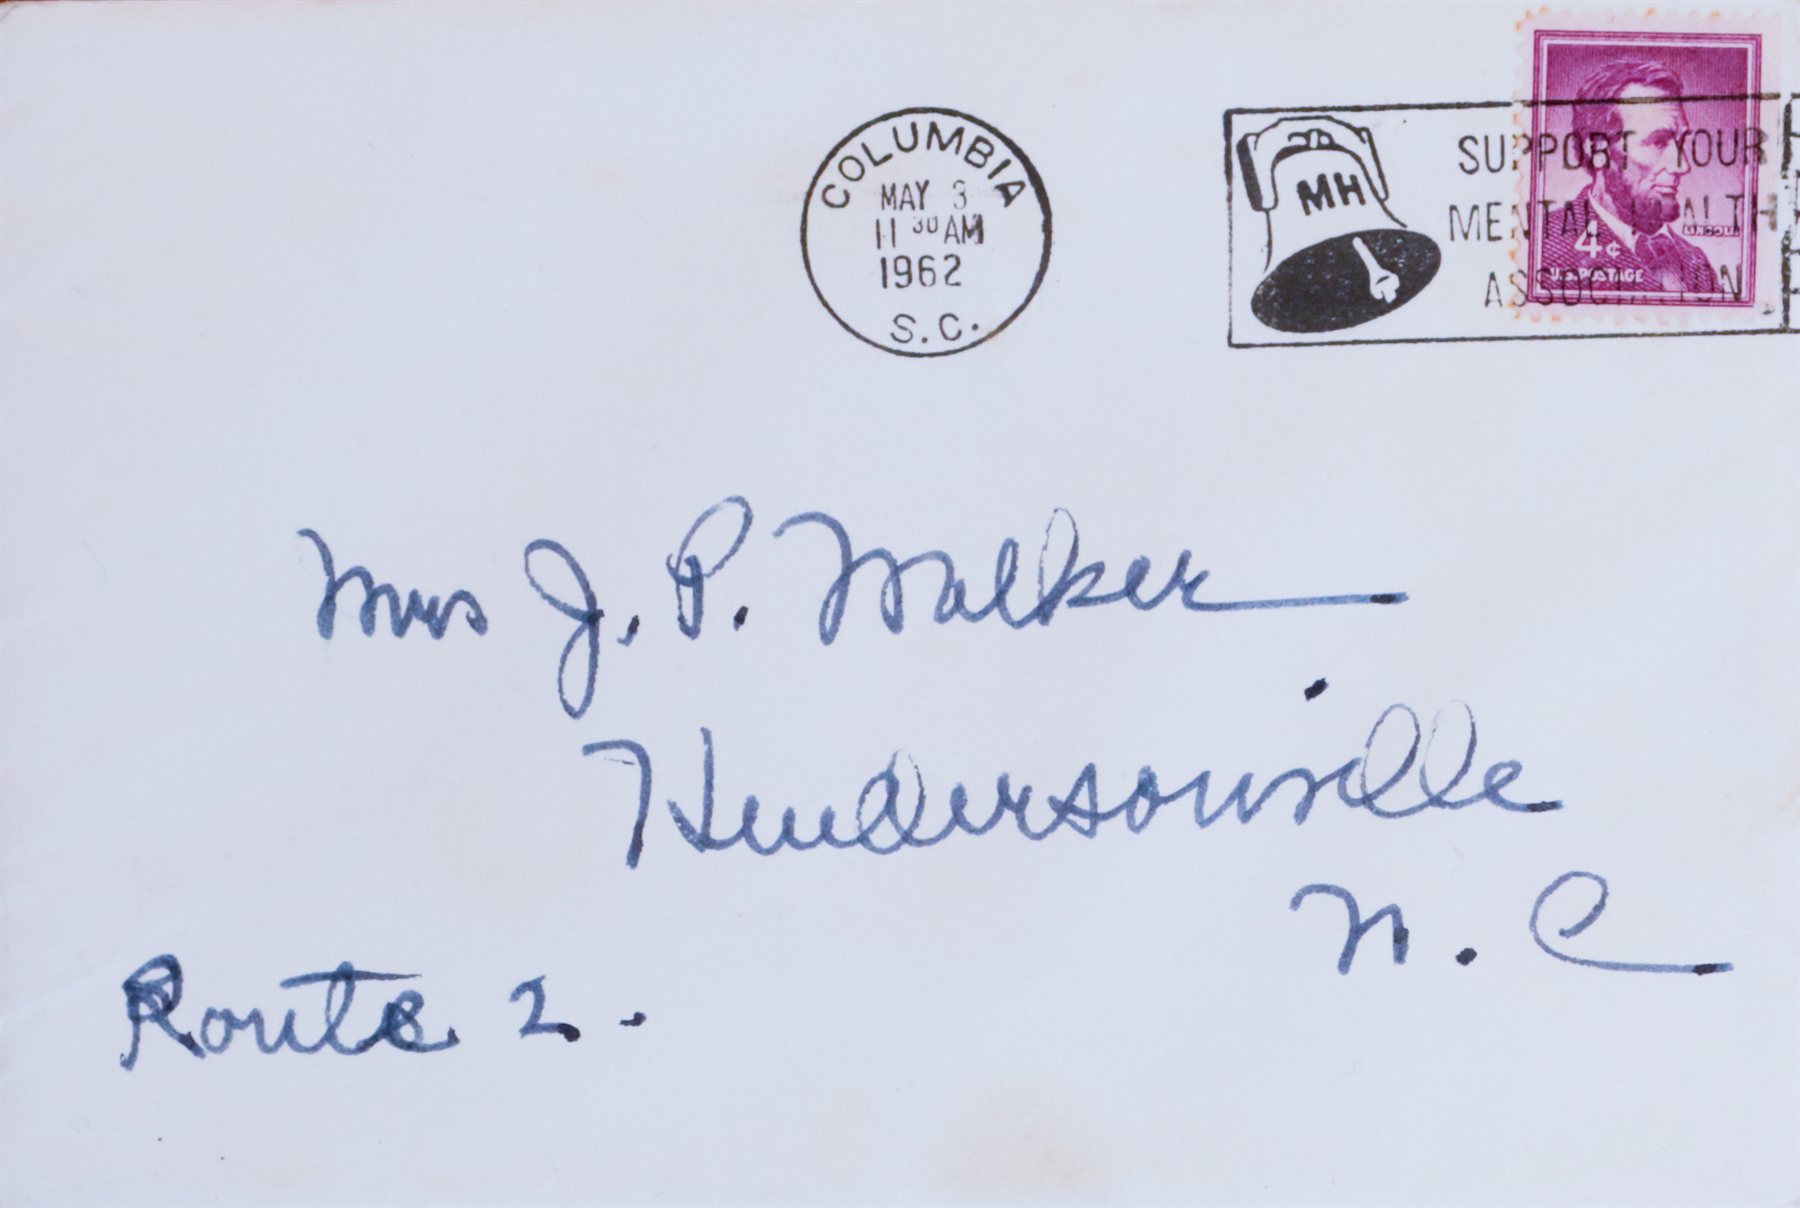 COLUMBIA
MAY 3
11 30 AM
1962
S.C.
MH
SUPPORT YOUR
MENTAL HEALTH
ASSOCIATION
LINCOLN
4¢
U.S. POSTAGE
Mrs J. P. Walker
Hendersonville
N. C
Route 2.